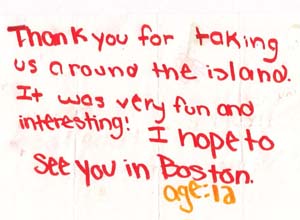 Thank you for taking
us around the island.
It was very fun and
interesting! I hope to
see you in Boston.
age:12